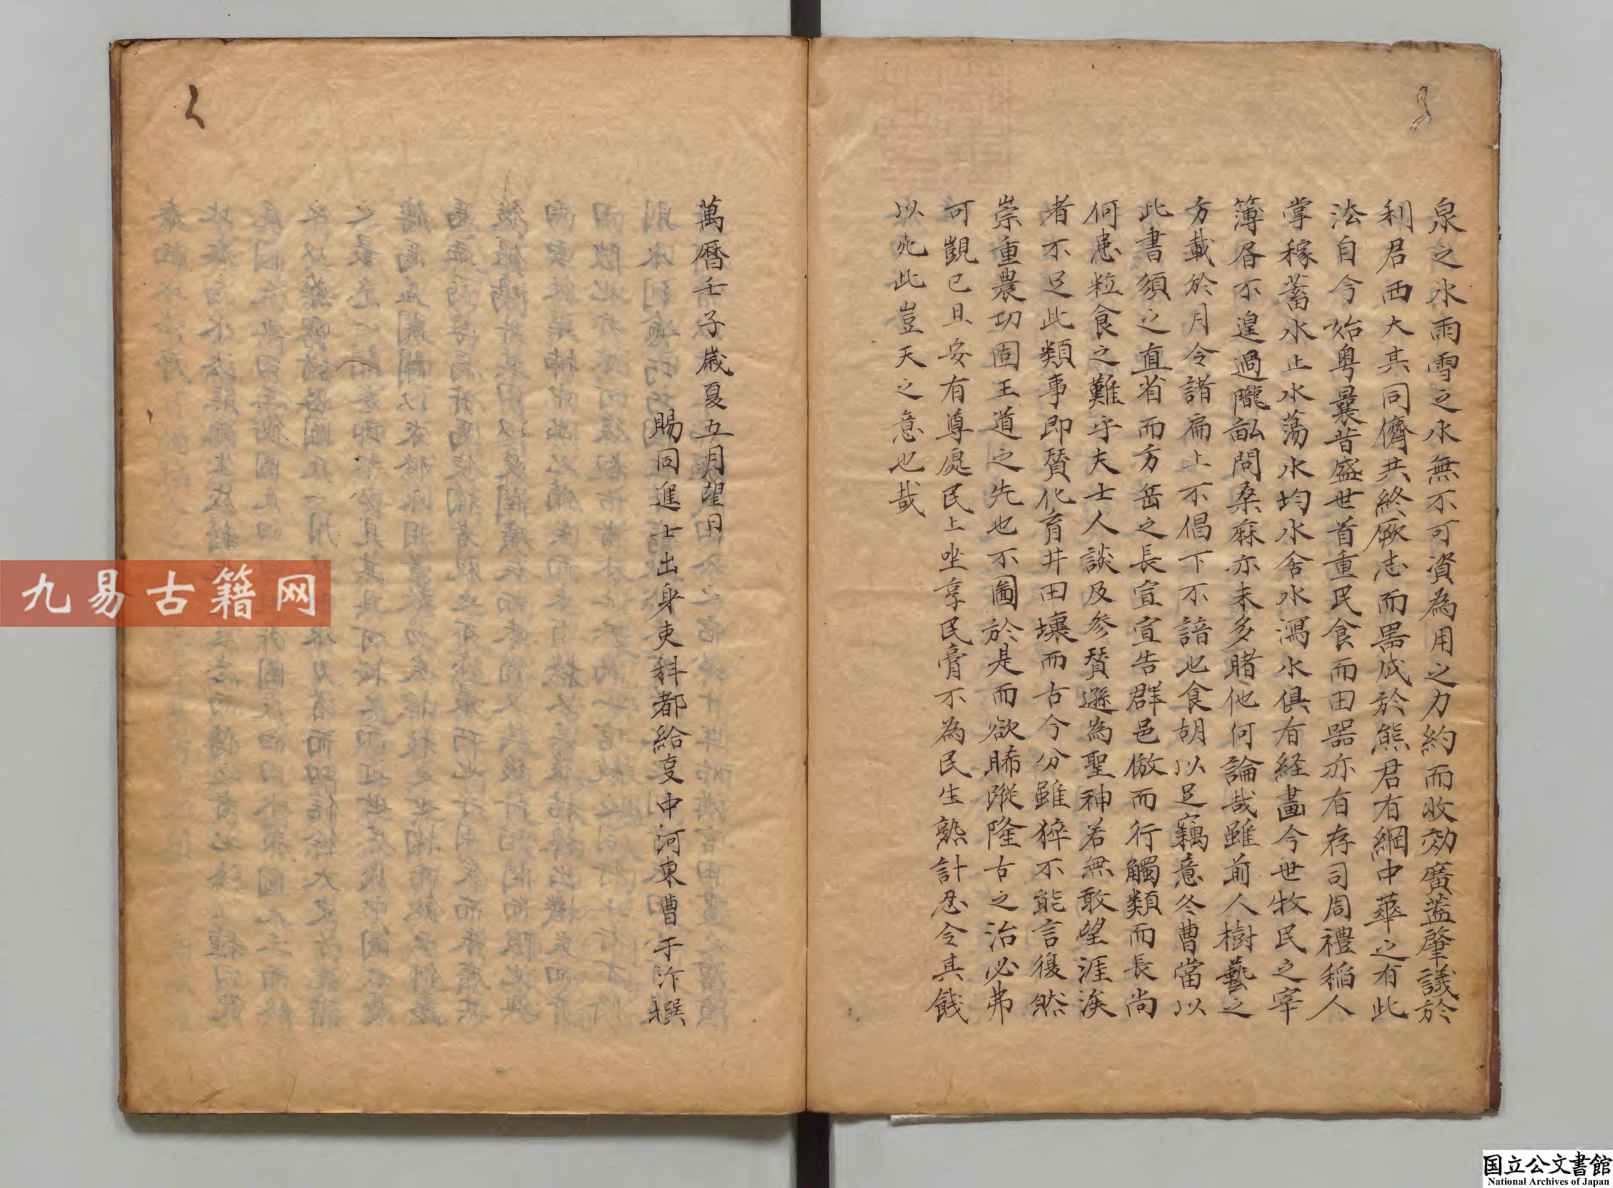 泉之水雨雪之水無不可資為用之力約而收効廣蓋肇議於
利君西大其同儕共終厥志而器成於熊君有綱中華之有此
法自今始粵曩昔盛世首重民食而田器亦有存司周禮稻人
掌稼蓄水止水蕩水均水舍水瀉水俱有経畫今世牧民之宰
簿眉不遑過隴畝問桑麻亦未多睹他何論哉雖前人樹藝之
方載於月令諸扁上不倡下不諳也食胡以足竊意冬曹當以
此書須之直省而方岳之長宣宣告群邑倣而行觸類而長尚
何患粒食之難乎夫士人談及參賛遜為聖神若無敢望涯涘
者不足此類事即賛化育井田壤而古今分雖猝不能言復然
崇重農功固王道之先也不圖於是而欲睎蹤隆古之治必弗
可覬已且安有尊處民上坐享民膏不為民生熟計忍令其餞
以死此豈天之意也哉
萬曆壬子歲夏五月望日
賜同進士出身吏科都給事中河東曹于汴撰
九易古籍网
国立公文書館
National Archives of Japan